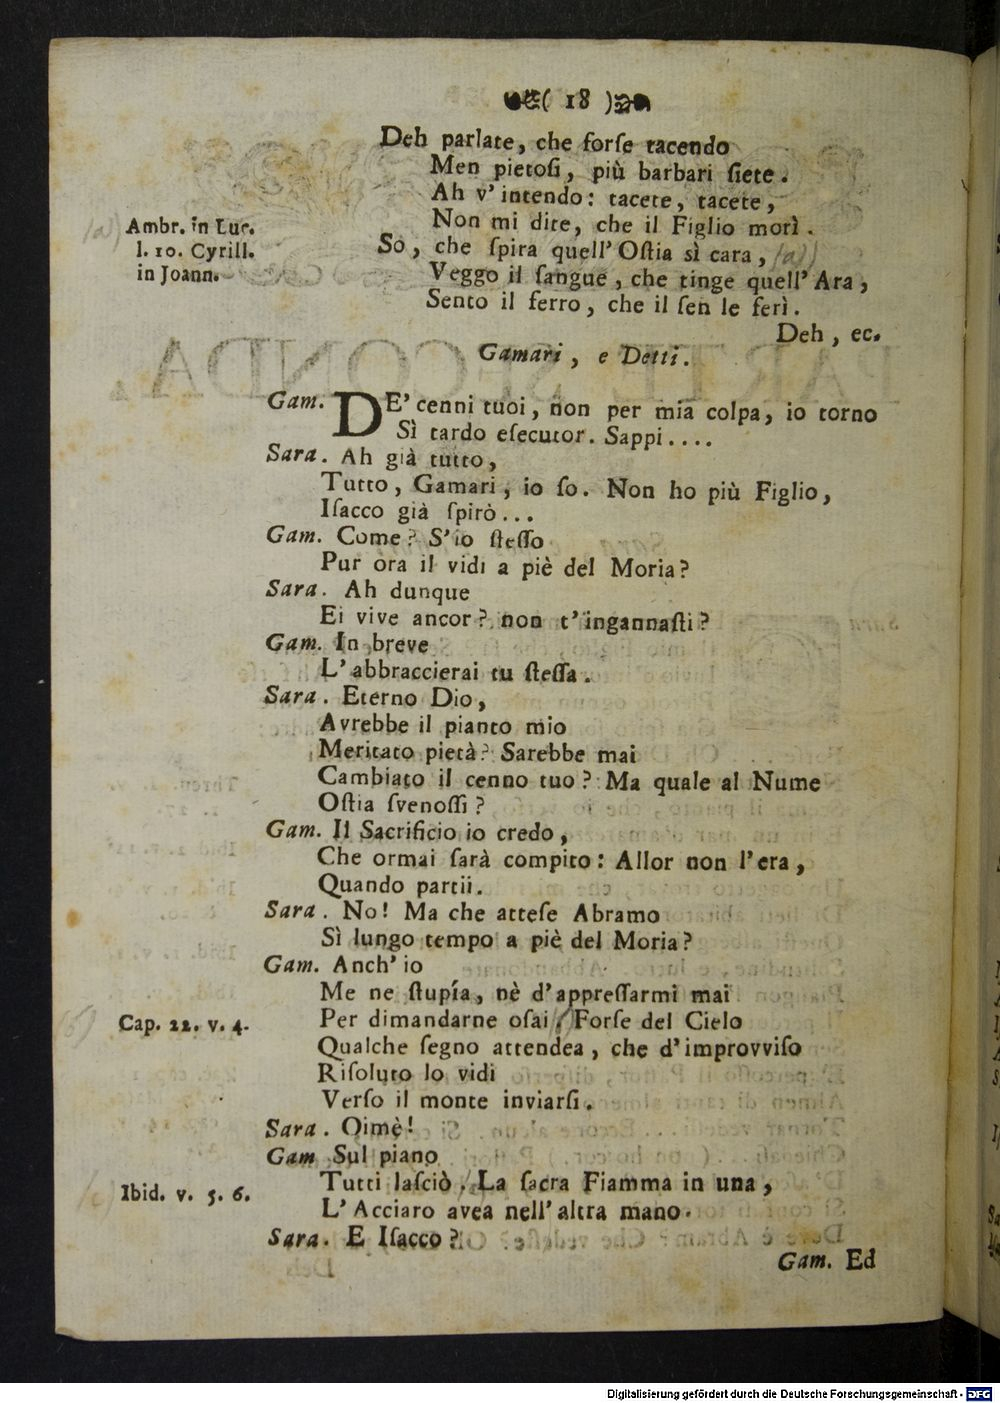 ( 18 )
Deh parlate, che forſe tacendo
Men pietoſi, più barbari ſiete.
Ah v'intendo: tacete, tacete,
Non mi dite, che il Figlio morì.
Ambr. in Luc.
l. 10. Cyrill.
in Joann.
Sò, che ſpira quell'Oſtia sì cara, (a)
Veggo il ſangue, che tinge quell'Ara,
Sento il ferro, che il ſen le ferì.
Deh, ec.
Gamari, e Detti.
Gam. DE' cenni tuoi, non per mia colpa, io torno
Sì tardo eſecutor. Sappi....
Sara. Ah già tutto,
Tutto, Gamari, io ſo. Non ho più Figlio,
Iſacco già ſpirò...
Gam. Come? S'io ſteſſo
Pur ora il vidi a piè del Moria?
Sara. Ah dunque
Ei vive ancor? non t'ingannaſti?
Gam. In breve
L'abbraccierai tu ſteſſa.
Sara. Eterno Dio,
Avrebbe il pianto mio
Meritato pietà? Sarebbe mai
Cambiato il cenno tuo? Ma quale al Nume
Oſtia ſvenoſſi?
Gam. Il Sacrificio io credo,
Che ormai ſarà compito: Allor non l'era,
Quando partii.
Sara. No! Ma che atteſe Abramo
Sì lungo tempo a piè del Moria?
Gam. Anch'io
Me ne ſtupía, nè d'appreſſarmi mai
Cap. 22. v. 4. Per dimandarne oſai. Forſe del Cielo
Qualche ſegno attendea, che d'improvviſo
Riſoluto lo vidi
Verſo il monte inviarſi.
Sara. Oimè!
Gam Sul piano
Ibid. v. 5. 6. Tutti laſciò. La ſacra Fiamma in una,
L'Acciaro avea nell'altra mano.
Sara. E Iſacco?
Gam. Ed
Digitalisierung gefördert durch die Deutsche Forschungsgemeinschaft - DFG